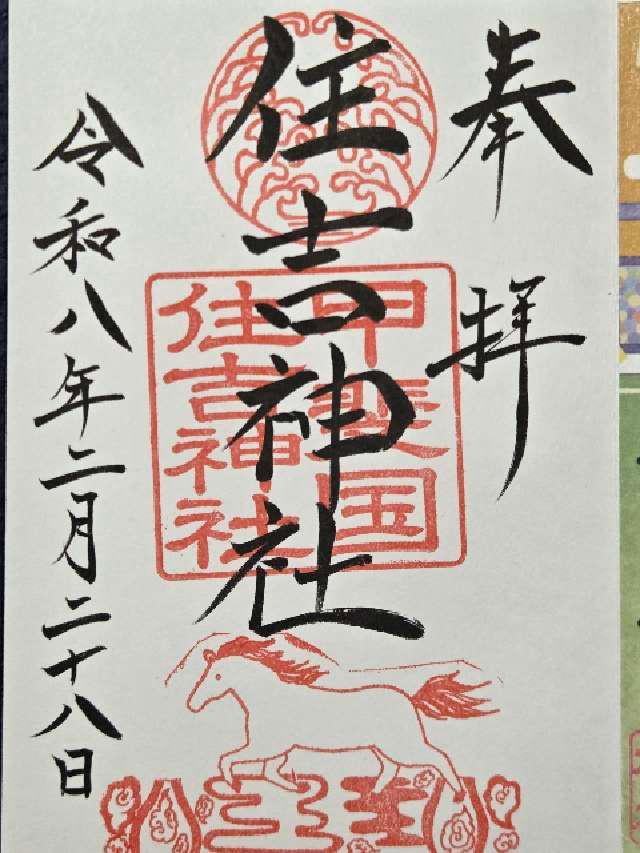 奉拝
住吉神社
甲斐国
住吉神社
令和八年二月二十八日